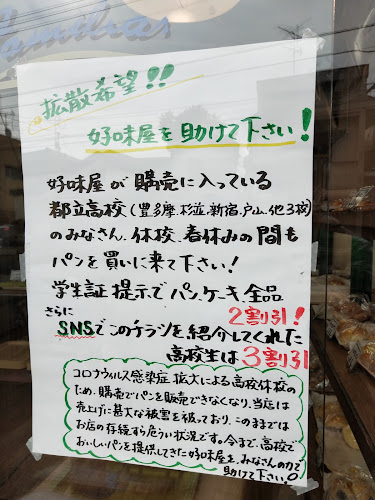 拡散希望!!
好味屋を助けて下さい!
好味屋が購売に入っている
都立高校(豊多摩、杉並、新宿、戸山、他3校)
のみなさん、休校、春休みの間も
パンを買いに来て下さい!
学生証提示でパン、ケーキ、全品
2割引!
さらに
SNSでこのチラシを紹介してくれた
高校生は3割引
コロナウィルス感染症拡大による高校休校の
ため、購売でパンを販売できなくなり、当店は
売上げに甚大な被害を被っており、このままでは
お店の存続すら危うい状況です。今まで、高校で
おいしいパンを提供してきた好味屋を、みなさんの力で
助けて下さい。